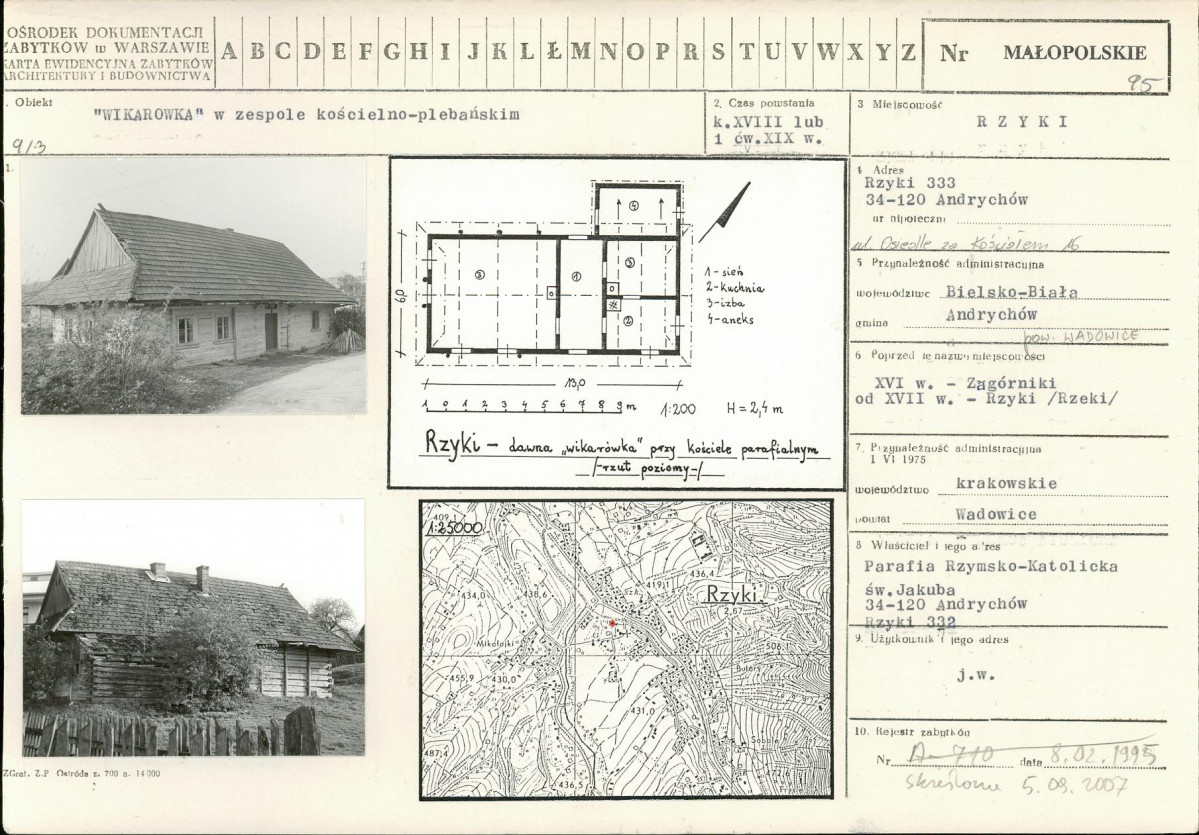 OŚRODEK DOKUMENTACJI
ZABYTKÓW w WARSZAWIE
KARTA EWIDENCYJNA ZABYTKÓW
ARCHITEKTURY I BUDOWNICTWA
A B C D E F G H I J K L Ł M N O P R S T U V W X Y Z
Nr MAŁOPOLSKIE
95
. Obiekt
"WIKARÓWKA" w zespole kościelno-plebańskim
913
2. Czas powstania
k.XVIII lub
1 ćw.XIX w.
3 Miejscowość
R Z Y K I
1.
4 Adres
Rzyki 333
34-120 Andrychów
nr hipoteczny
ul. Osiedle za Kościołem 16
5 Przynależność administracyjna
województwo Bielsko-Biała
Andrychów
gmina
pow. WADOWICE
6 Poprzednie nazwy miejscowości
XVI w. - Zagórniki
od XVII w. - Rzyki /Rzeki/
7. Przynależność administracyjna
1 VI 1975
województwo krakowskie
powiat Wadowice
8 Właściciel i jego adres
Parafia Rzymsko-Katolicka
św.Jakuba
34-120 Andrychów
Rzyki 332
9. Użytkownik i jego adres
j.w.
10. Rejestr zabytków
Nr A-710 data 8.02.1995
skreślono 5.09.2007
4
3
1
3
2
1 - sień
2 - kuchnia
3 - izba
4 - aneks
6,0
13,0
1 0 1 2 3 4 5 6 7 8 9 m 1:200 H = 2,4 m
Rzyki - dawna „wikarówka" przy kościele parafialnym
/-rzut poziomy-/
409,1
1:25000
434,0
438,6
419,1
436,4
Rzyki
2,67
Mikołajki
455,9
430,0
506,1
431,0
487,4
472,6
436,5
ZGraf. Z.P Ostróda z. 700 n. 14000